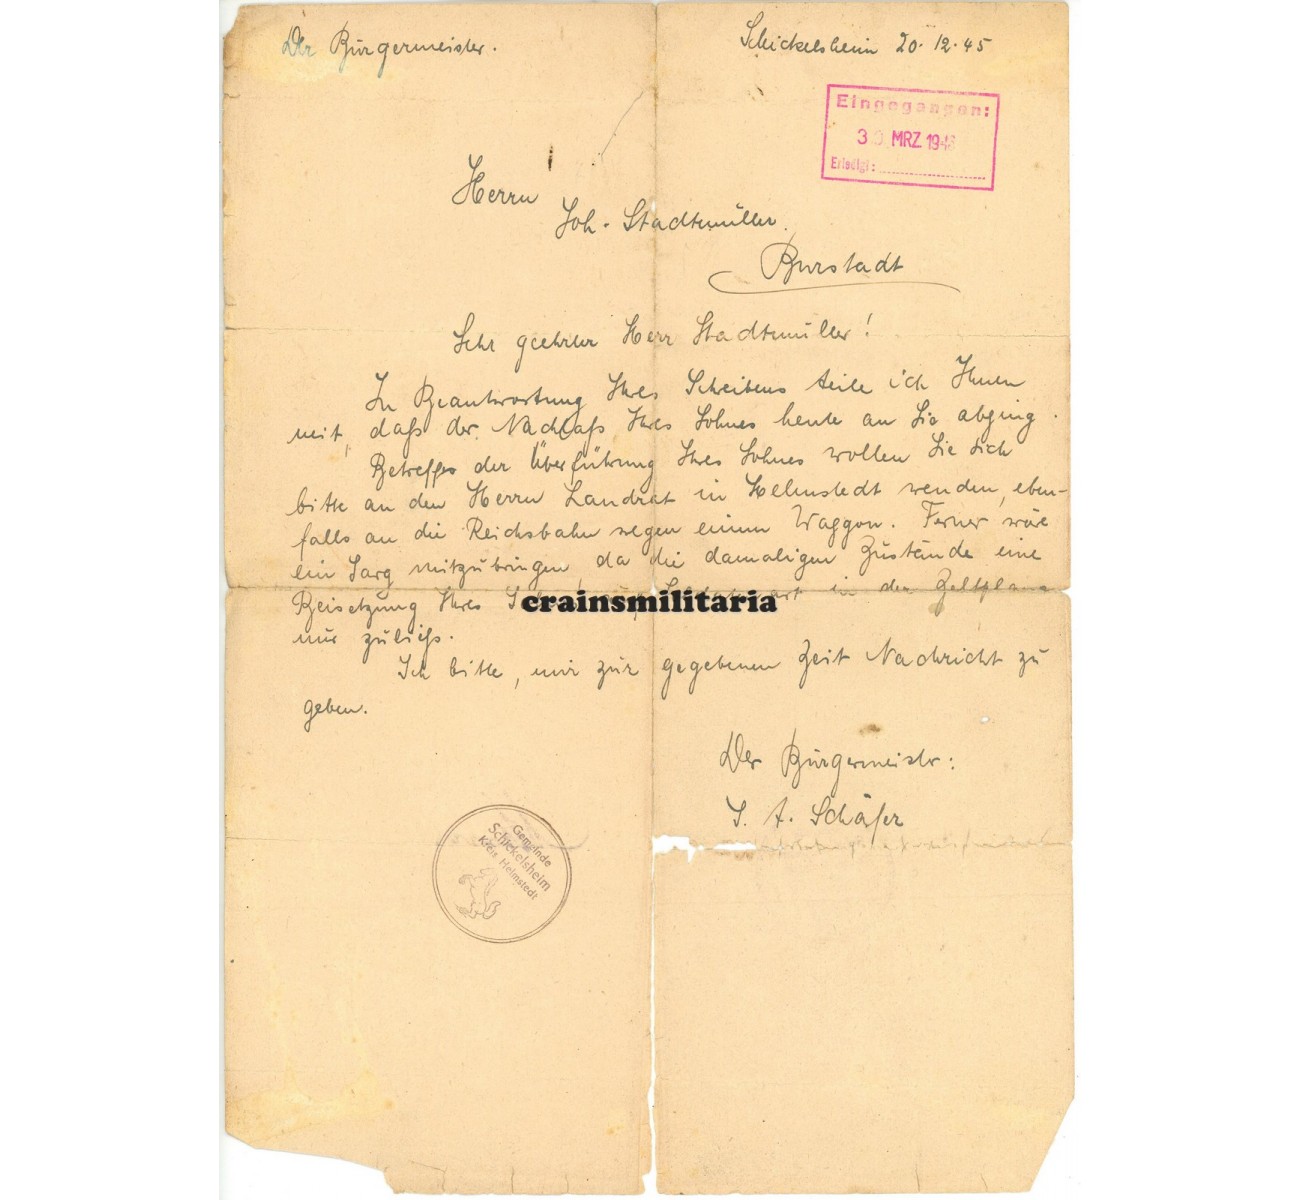 Der Bürgermeister.
Schickelsheim 20.12.45
Eingegangen:
30. MRZ. 194
Erledigt:
Herrn
Joh. Stadtmüller.
Burstadt
Sehr geehrter Herr Stadtmüller!
In Beantwortung Ihres Schreibens teile ich Ihnen
mit, daß der Nachlaß Ihres Sohnes heute an Sie abging.
Betreffes der Überführung Ihres Sohnes wollen Sie sich
bitte an den Herrn Landrat in Helmstedt wenden, eben-
falls an die Reichsbahn wegen einem Waggon. Ferner wäre
ein Sarg mitzubringen, da die damaligen Zustände eine
Beisetzung Ihres in der Zeltplane
crainsmilitaria
nur zuließ.
Ich bitte, mir zur gegebenen Zeit Nachricht zu
geben.
Der Bürgermeister:
I. A. Schäfer
Gemeinde
Schickelsheim
Kreis Helmstedt